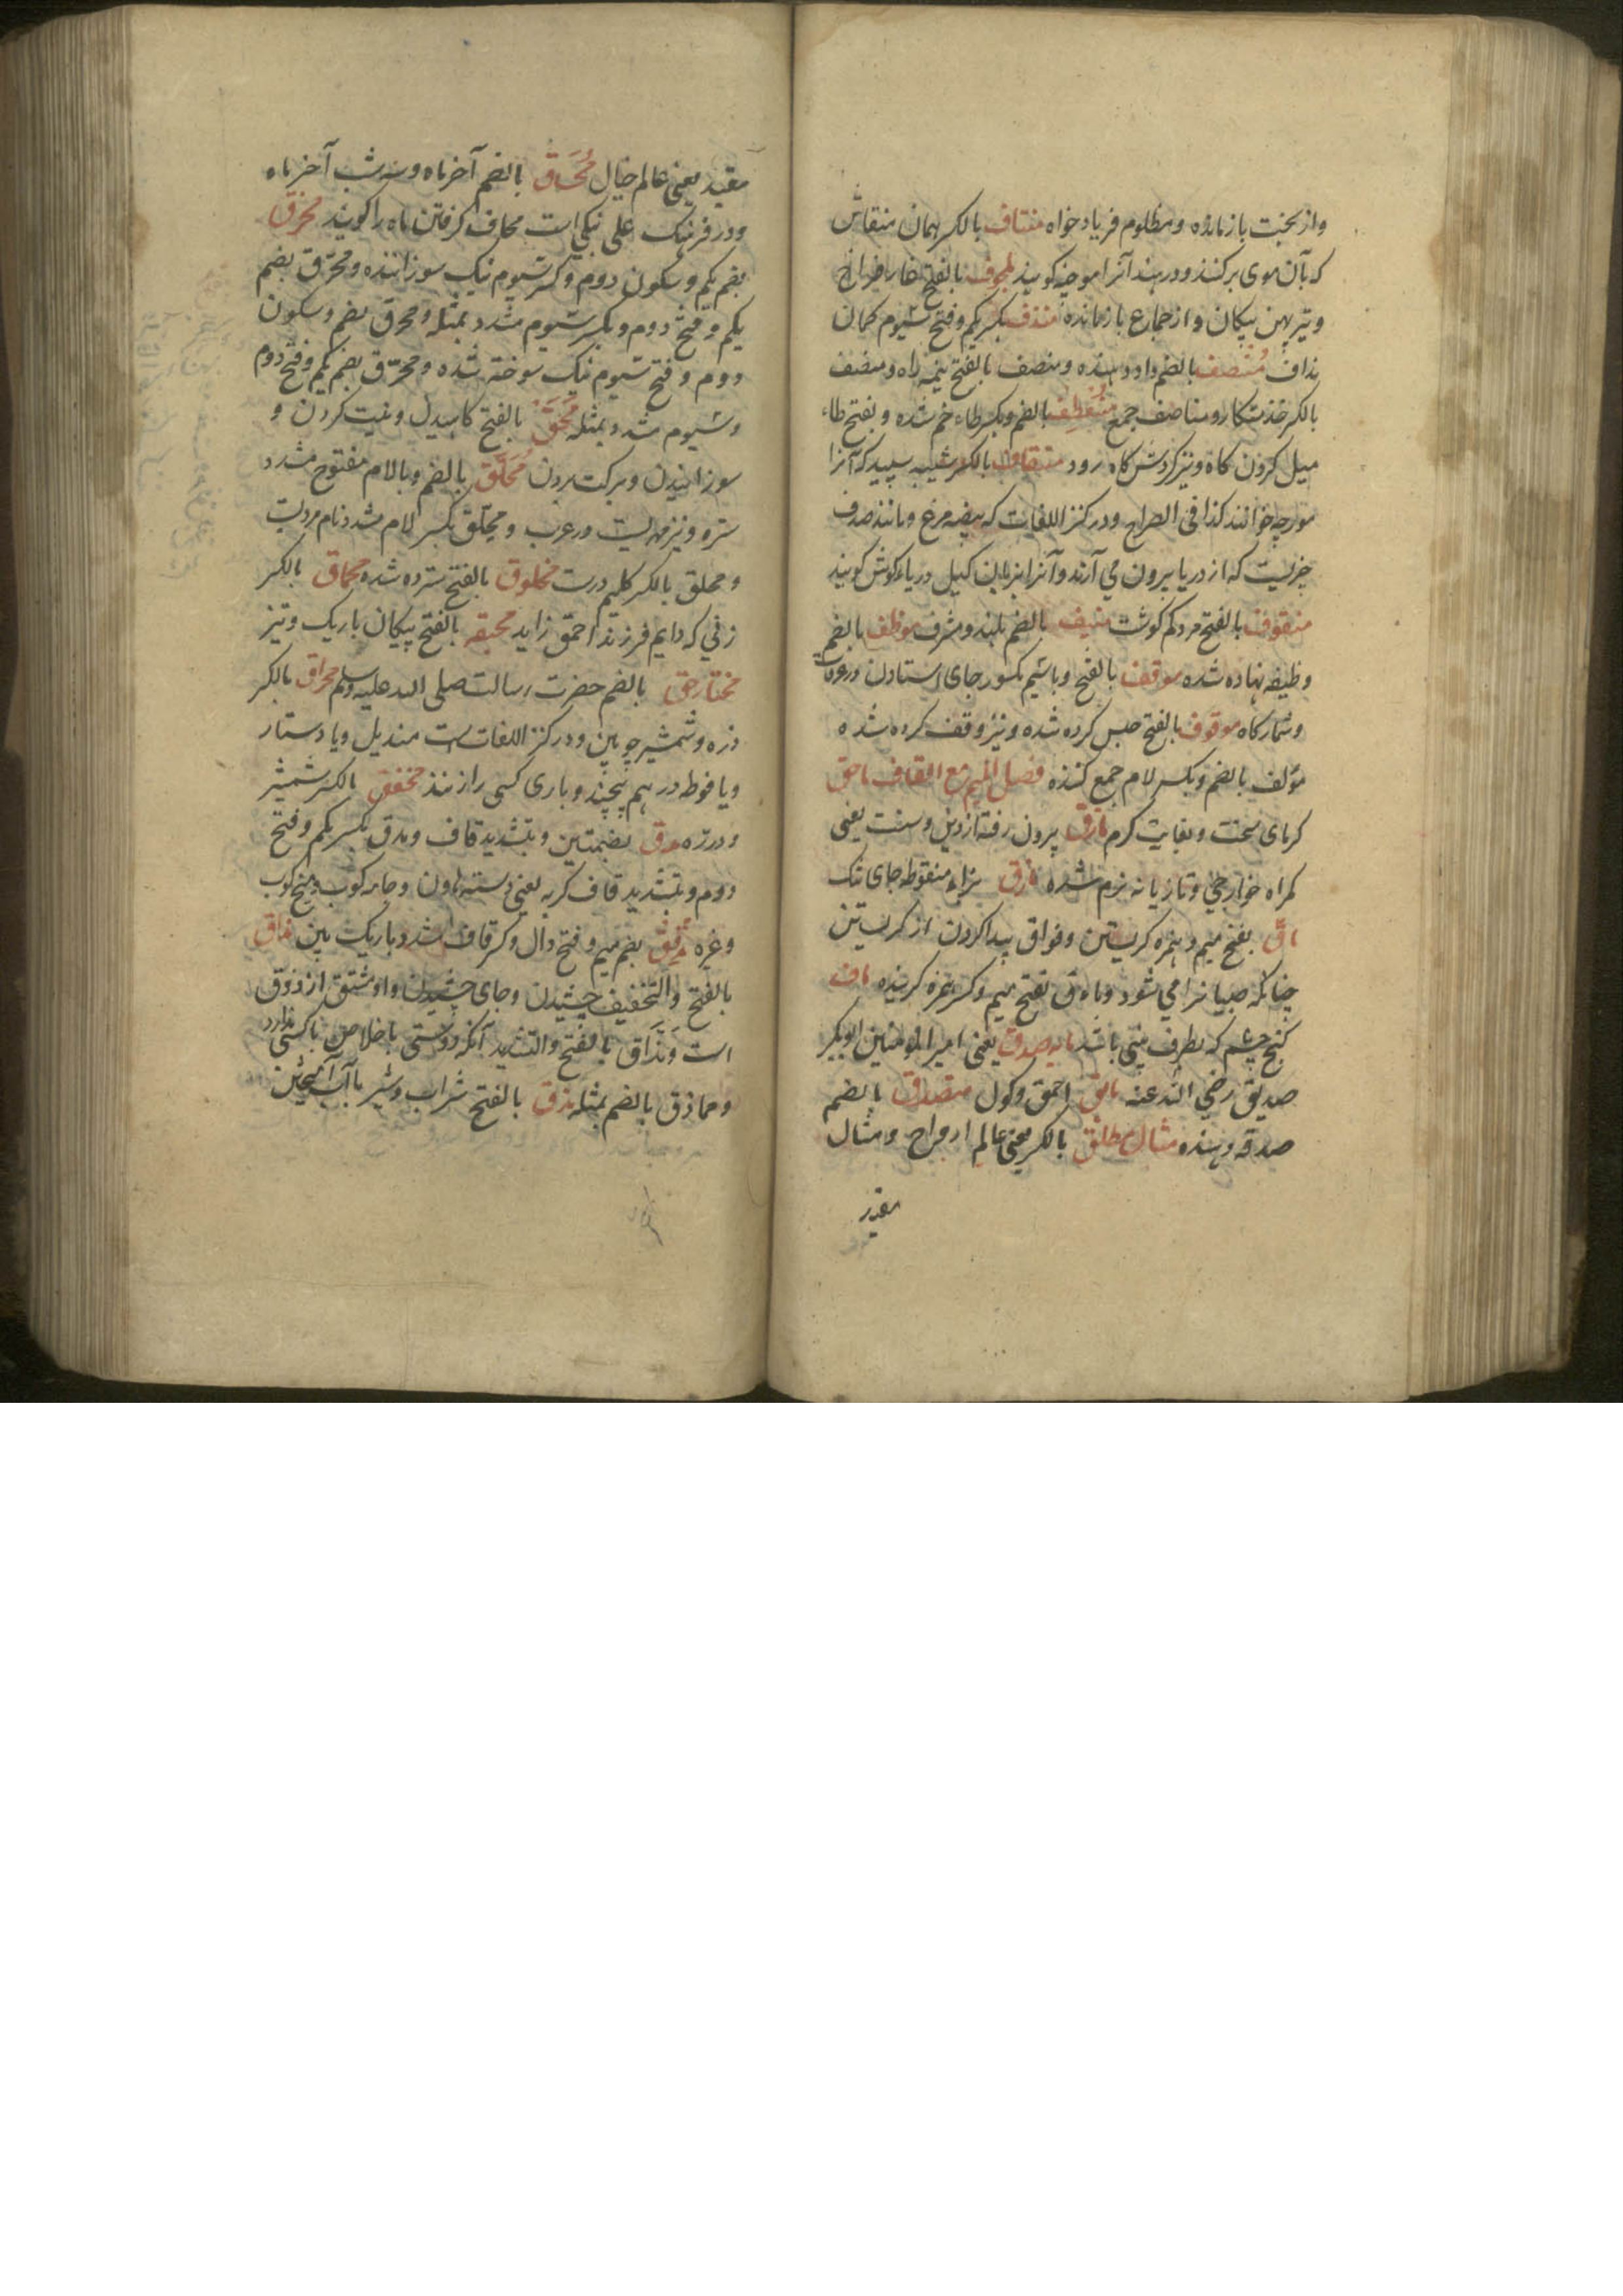 واز بخت بازمانده ومظلوم فریاد خواه منتاف بالکسر همان منقاش
که بآن موی برکنند ودر هند آنرا موچنه کویند بالفتح غار فراخ
وتیر پهن پیکان واز جماع بازمانده مندف بکسر یکم وفتح سیوم کمان
نداف منصف بالضم داد دهنده ومنصف بالفتح نیمه راه ومنصف
بالکسر خدمتکار ومناصف جمع منعطف بالضم وبکسر طاء خم شده وبفتح طاء
میل کردن کاه ونیز کردش کاه رود منقاف بالکسر شیبه سپید که آنرا
مورچه خوانند کذا فی الصراح ودر کنز اللغات که بیضه مرغ ومانند صدف
چیزیست که از دریا بیرون می آرند وآنرا بزبان کیل دریاء کوش کویند
منقوف بالفتح مرد کم کوشت منیف بالضم بلند ومشرف موظف بالضم
وظیفه نهاده شده موقف بالفتح وباسیم مکسور جای استادن در عرفات
وشمارکاه موقوف بالفتح حبس کرده شده ونیز وقف کرده شده
مؤلف بالضم وبکسر لام جمع کننده فصل المیم مع القاف ماحق
کرمای سخت وبغایت کرم مارق بیرون رفته از دین وسنت یعنی
کمراه خوارجی وتازیانه نرم شده مازق بزاء منقوطه جای تنک
ماق بفتح میم وهمزه کریستن وفواق پیدا کردن از کریستن
چنانکه صبیانرا می شود وماق بفتح میم وکسر همزه کرینده ماق
کنج چشم که بطرف بینی باشد مایه صدق یعنی امیر المؤمنین ابوبکر
صدیق رضی الله عنه مایق احمق وکول متصدق بالضم
صدقه دهنده مثال مطلق بالکسر یعنی عالم ارواح ومثال
مقید
مقید یعنی عالم خیال مُحَاق بالضم آخر ماه وسه شب آخر ماه
ودر فرهنک علی نیکی است محاق کرفتن ماه را کویند محرق
بضم یکم وسکون دوم وکسر سیوم نیک سوزاننده ومحرّق بضم
یکم وفتح دوم وبکسر سیوم مشدد بمثله ومحرق بضم وسکون
دوم وفتح سیوم نیک سوخته شده ومحرّق بضم یکم وفتح دوم
وسیوم مشدد بمثله محق بالفتح کاهیدن ونیست کردن و
سوزانیدن وبرکت بردن مُحَلَّق بالضم وبالام مفتوح مشدد
ستره ونیز مهریست در عرب ومحلّق بکسر لام مشدد نام مردیست
ومحلق بالکسر کلیم درست محلوق بالفتح سترده شده محماق بالکسر
زنی که دایم فرزند احمق زاید محیقه بالفتح پیکان باریک وتیز
مختار حق بالضم حضرت رسالت صلی الله علیه وسلم مخراق بالکسر
دره وشمشیر چوبین ودر کنز اللغات است مندیل ویا دستار
ویا فوطه درهم پیچند وباری کسی را زنند مخفق بالکسر شمشیر
ودره مدق بضمتین وبتشدید قاف ومدق بکسر یکم وفتح
دوم وبتشدید قاف کربه یعنی دسته هاون وجامه کوب ومیخ کوب
وغیره مدقق بضم میم وفتح دال وکسر قاف مشدد باریک بین مذاق
بالفتح والتخفیف چشیدن وجای چشیدن واو مشتق از ذوق
است ومَذَاق بالفتح والتشدید آنکه دوستی باخلاص باکسی ندارد
ومماذق بالضم بمثله مذق بالفتح شراب وشیر باآب آمیختن